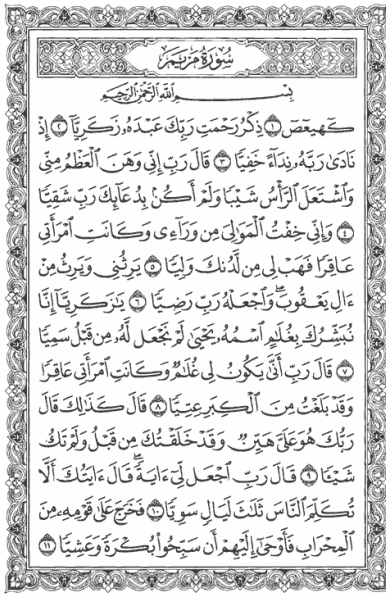 سُورَةُ مَرْيَمَ
بِسْمِ ٱللَّهِ ٱلرَّحْمَٰنِ ٱلرَّحِيمِ
كٓهيعٓصٓ ۝١ ذِكْرُ رَحْمَتِ رَبِّكَ عَبْدَهُۥ زَكَرِيَّآ ۝٢ إِذْ
نَادَىٰ رَبَّهُۥ نِدَآءً خَفِيًّا ۝٣ قَالَ رَبِّ إِنِّى وَهَنَ ٱلْعَظْمُ مِنِّى
وَٱشْتَعَلَ ٱلرَّأْسُ شَيْبًا وَلَمْ أَكُنۢ بِدُعَآئِكَ رَبِّ شَقِيًّا
۝٤ وَإِنِّى خِفْتُ ٱلْمَوَٰلِىَ مِن وَرَآءِى وَكَانَتِ ٱمْرَأَتِى
عَاقِرًا فَهَبْ لِى مِن لَّدُنكَ وَلِيًّا ۝٥ يَرِثُنِى وَيَرِثُ مِنْ
ءَالِ يَعْقُوبَ ۖ وَٱجْعَلْهُ رَبِّ رَضِيًّا ۝٦ يَٰزَكَرِيَّآ إِنَّا
نُبَشِّرُكَ بِغُلَٰمٍ ٱسْمُهُۥ يَحْيَىٰ لَمْ نَجْعَل لَّهُۥ مِن قَبْلُ سَمِيًّا
۝٧ قَالَ رَبِّ أَنَّىٰ يَكُونُ لِى غُلَٰمٌ وَكَانَتِ ٱمْرَأَتِى عَاقِرًا
وَقَدْ بَلَغْتُ مِنَ ٱلْكِبَرِ عِتِيًّا ۝٨ قَالَ كَذَٰلِكَ قَالَ
رَبُّكَ هُوَ عَلَىَّ هَيِّنٌ وَقَدْ خَلَقْتُكَ مِن قَبْلُ وَلَمْ تَكُ
شَيْـًٔا ۝٩ قَالَ رَبِّ ٱجْعَل لِّىٓ ءَايَةً ۚ قَالَ ءَايَتُكَ أَلَّا
تُكَلِّمَ ٱلنَّاسَ ثَلَٰثَ لَيَالٍ سَوِيًّا ۝١٠ فَخَرَجَ عَلَىٰ قَوْمِهِۦ مِنَ
ٱلْمِحْرَابِ فَأَوْحَىٰٓ إِلَيْهِمْ أَن سَبِّحُوا۟ بُكْرَةً وَعَشِيًّا ۝١١